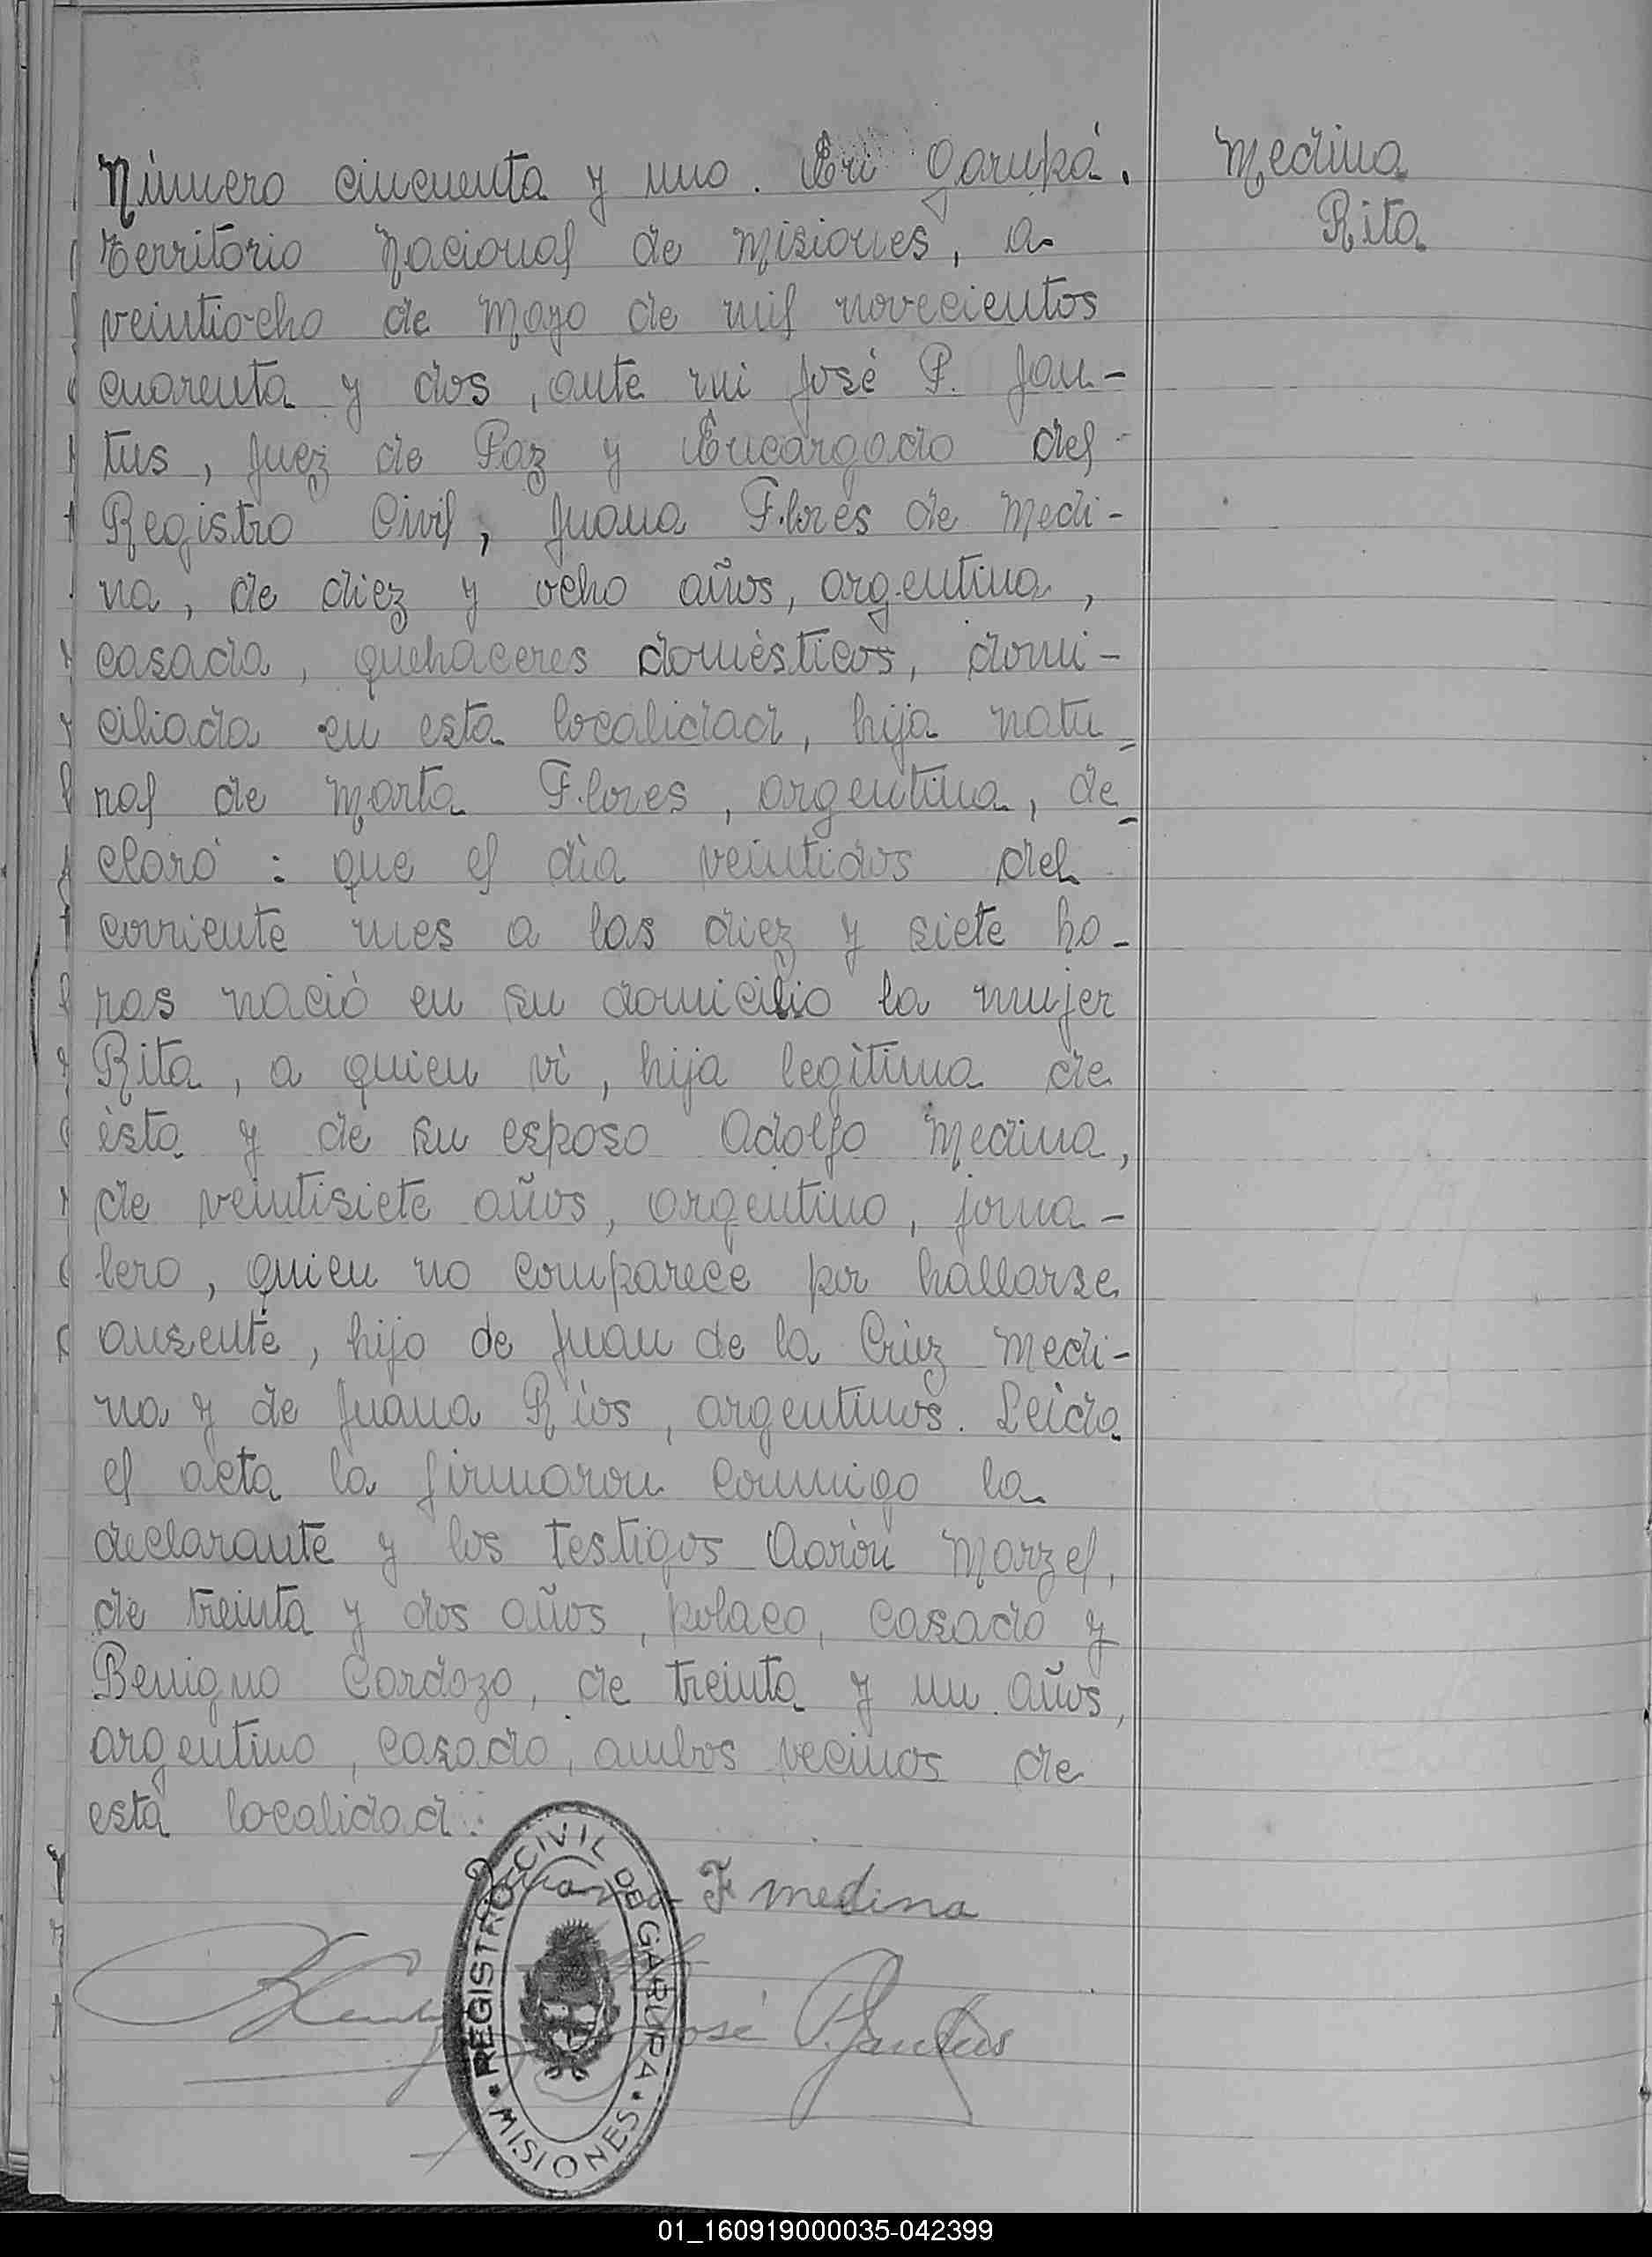 Número cincuenta y uno. En Garupá,
Territorio Nacional de Misiones, a
veintiocho de Mayo de mil novecientos
cuarenta y dos, ante mi José P. Jan-
tus, Juez de Paz y Encargado del
Registro Civil, Juana Flores de Medi-
na, de diez y ocho años, argentina,
casada, quehaceres domésticos, domi-
ciliada en esta localidad, hija natu-
ral de Marta Flores, argentina, de-
claró: que el dìa veintidos del
corriente mes a las diez y siete ho-
ras nació en su domicilio la mujer
Rita, a quien vì, hija legìtima de
èsta y de su esposo Adolfo Medina,
de veintisiete años, argentino, jorna-
lero, quien no comparece por hallarse
ausente, hijo de Juan de la Crùz Medi-
na y de Juana Rìos, argentinos. Leìda
el acta la firmaron conmigo la
declarante y los testigos Aaròn Marzel,
de treinta y dos años, polaco, casado y
Benigno Cardozo, de treinta y un años,
argentino, casado, ambos vecinos de
esta localidad.
Medina
Rita
Juana F medina
José P. Jantus
REGISTRO CIVIL DE GARUPA
MISIONES
01_160919000035-042399